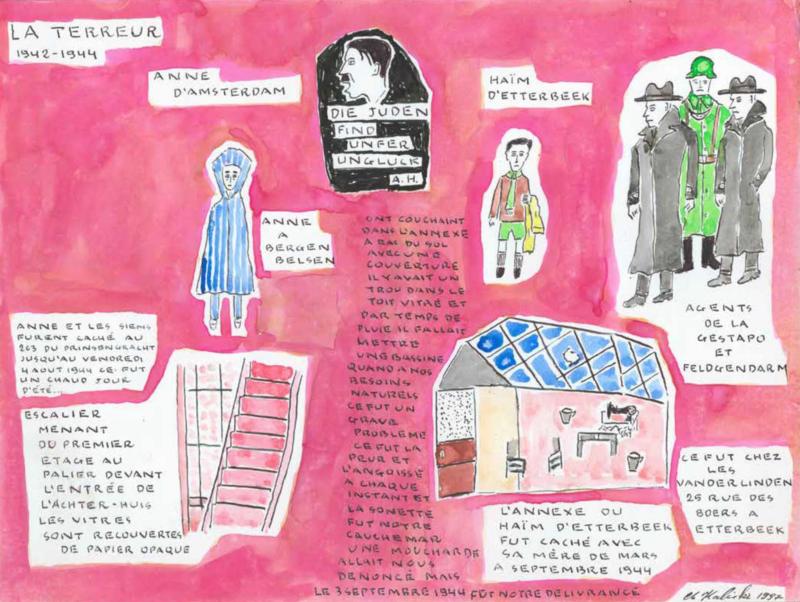 LA TERREUR
1942-1944
ANNE
D'AMSTERDAM
DIE JUDEN
FIND
UNFER
UNGLUCK
A.H.
HAÏM
D'ETTERBEEK
ANNE
A
BERGEN
BELSEN
AGENTS
DE LA
GESTAPO
ET
FELDGENDARM
ANNE ET LES SIENS
FURENT CACHÉ AU
263 DU PRINSENGRACHT
JUSQU'AU VENDREDI
4 AOUT 1944 CE FUT
UN CHAUD JOUR
D'ÉTÉ...
ESCALIER
MENANT
DU PREMIER
ETAGE AU
PALIER DEVANT
L'ENTRÉE DE
L'ACHTER-HUIS
LES VITRES
SONT RECOUVERTES
DE PAPIER OPAQUE
ONT COUCHAINT
DANS L'ANNEXE
A RAS DU SOL
AVEC UNE
COUVERTURE
IL Y AVAIT UN
TROU DANS LE
TOIT VITRÉ ET
PAR TEMPS DE
PLUIE IL FALLAIT
METTRE
UNE BASSINE
QUAND A NOS
BESOINS
NATURELS
CE FUT UN
GRAVE
PROBLEME
CE FUT LA
PEUR ET
L'ANGOISSE
A CHAQUE
INSTANT ET
LA SONETTE
FUT NOTRE
CAUCHEMAR
UNE MOUCHARDE
ALLAIT NOUS
DENONCÉ MAIS
LE 3 SEPTEMBRE 1944 FUT NOTRE DELIVRANCE
L'ANNEXE OU
HAÏM D'ETTERBEEK
FUT CACHÉ AVEC
SA MÈRE DE MARS
A SEPTEMBRE 1944
CE FUT CHEZ
LES
VANDERLINDEN
25 RUE DES
BOERS A
ETTERBEEK